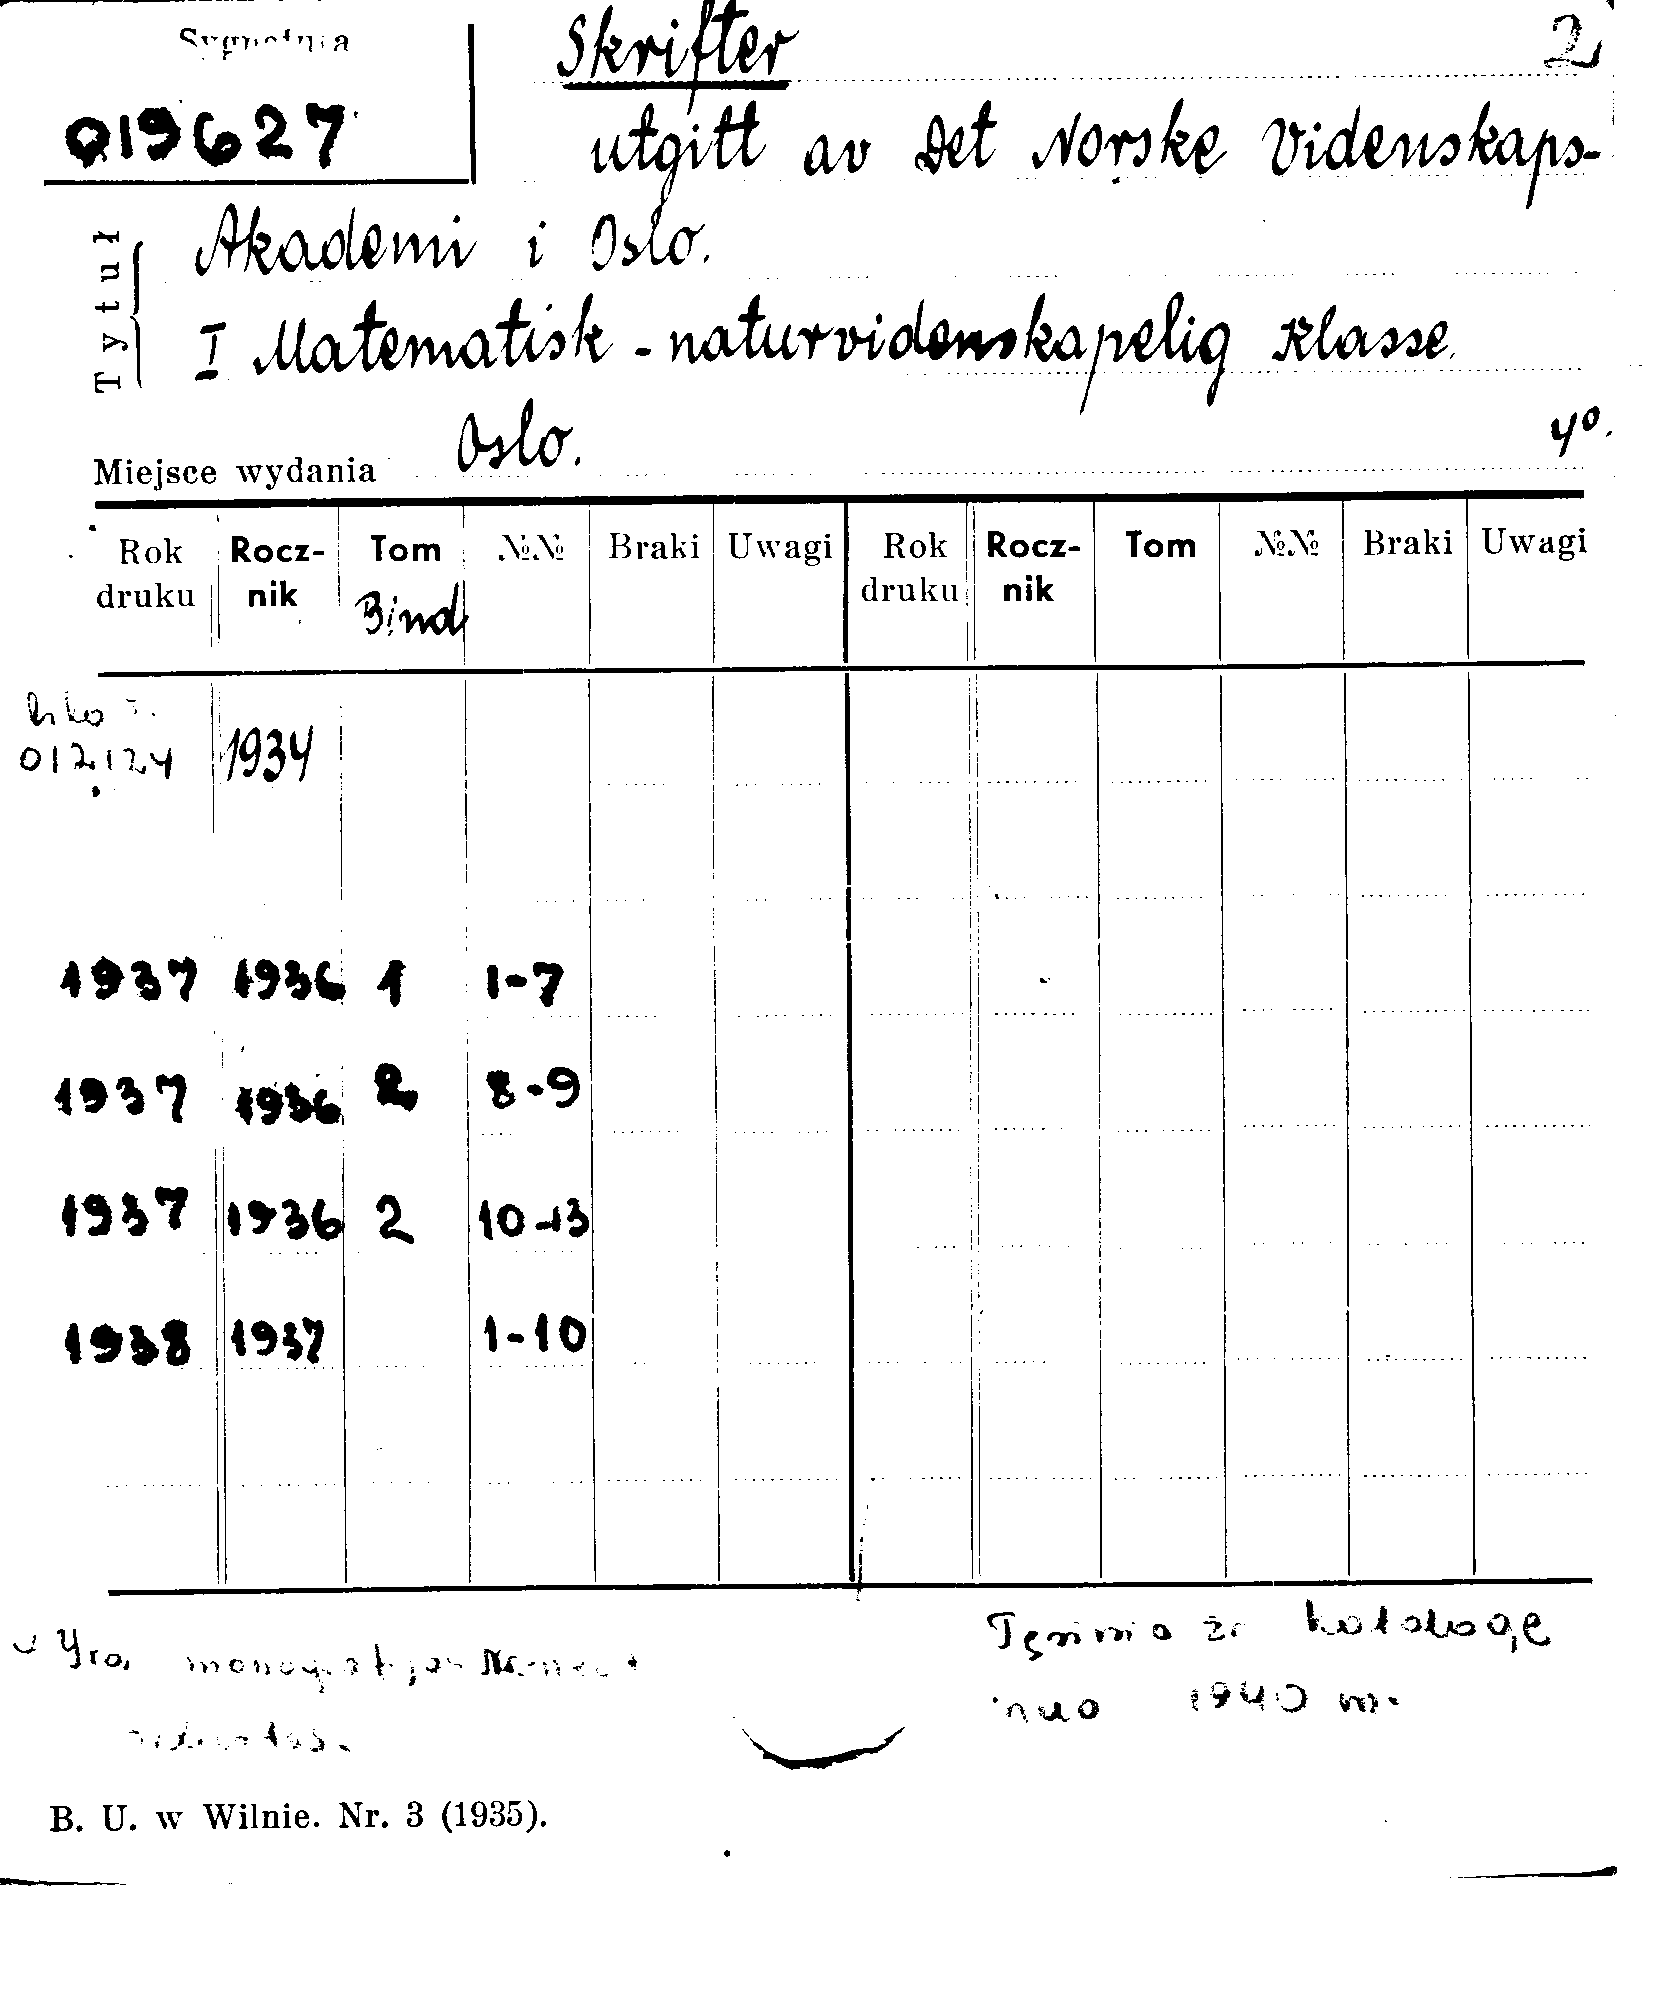 Sygnatura
019627
Skrifter 2
utgitt av Det Norske Videnskaps-
Akademi i Oslo.
I Matematisk-naturvidenskapelig Klasse.
Tytuł
Miejsce wydania Oslo. 4º.
Rok druku Rocz-nik Tom №№ Braki Uwagi Rok druku Rocz-nik Tom №№ Braki Uwagi
Bind
012124 1934
1937 1936 1 1-7
1937 1936 2 8-9
1937 1936 2 10-13
1938 1937 1-10
Yra
Tęsinio ž. kataloge
nuo 1940 m.
B. U. w Wilnie. Nr. 3 (1935).